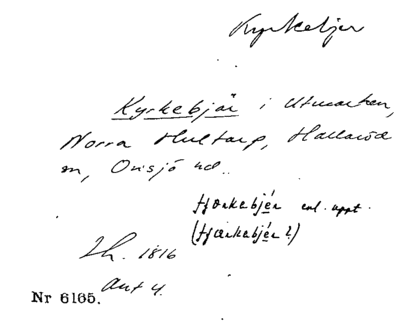 Kyrkebjer
Kyrkebjär i Utmarken,
Norra Hultarp, Hallaröd
sn, Onsjö hd.
tjorkebjér enl. uppt.
(tjœrkebjér ?)
Lh. 1816
Ant 4.
Nr 6165.